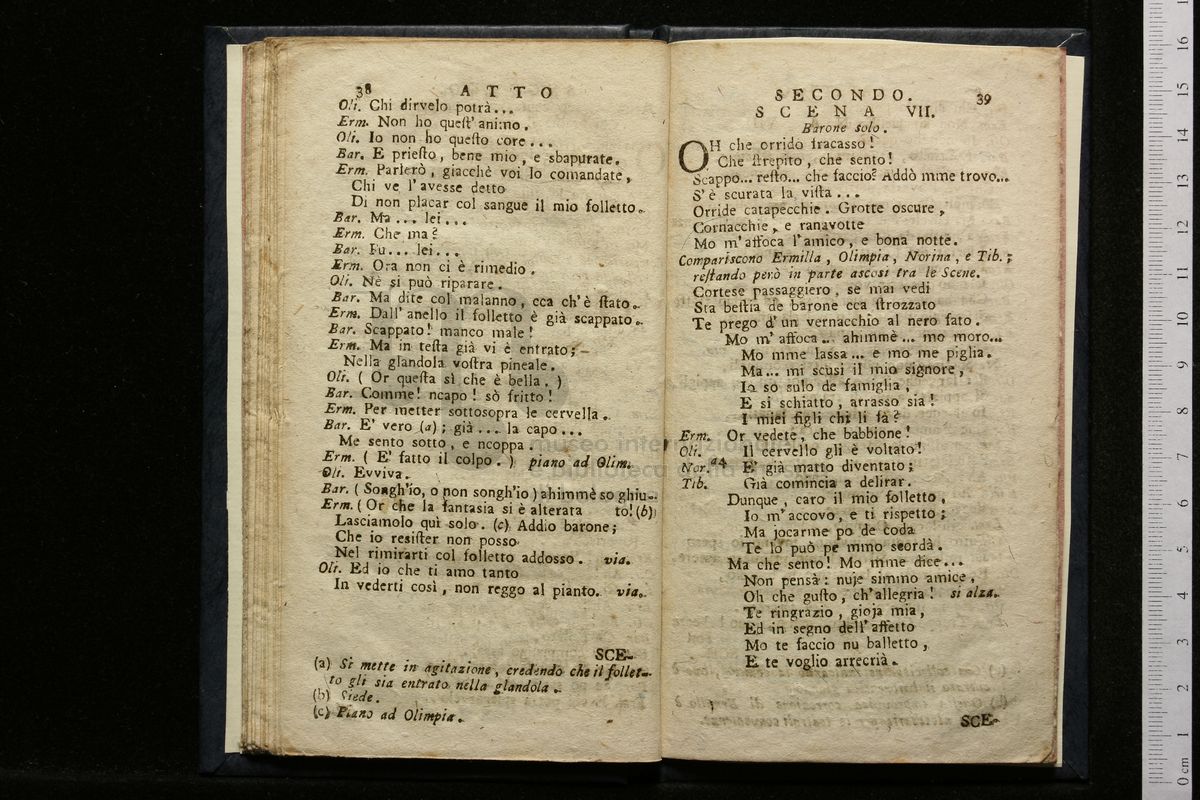 38 ATTO
Oli. Chi dirvelo potrà...
Erm. Non ho quest' animo.
Oli. Io non ho questo core...
Bar. E priesto, bene mio, e sbapurate.
Erm. Parlerò, giacchè voi lo comandate,
Chi ve l'avesse detto
Di non placar col sangue il mio folletto.
Bar. Ma... lei...
Erm. Che ma?
Bar. Fu... lei...
Erm. Ora non ci è rimedio.
Oli. Nè si può riparare.
Bar. Ma dite col malanno, cca ch'è stato.
Erm. Dall' anello il folletto è già scappato.
Bar. Scappato! manco male!
Erm. Ma in testa già vi è entrato;
Nella glandola vostra pineale.
Oli. ( Or questa sì che è bella. )
Bar. Comme! ncapo! sò fritto!
Erm. Per metter sottosopra le cervella.
Bar. E' vero (a); già... la capo...
Me sento sotto, e ncoppa.
Erm. ( E' fatto il colpo. ) piano ad Olim.
Oli. Evviva.
Bar. ( Songh'io, o non songh'io ) ahimmè so ghiu-
Erm. ( Or che la fantasia si è alterata to! (b)
Lasciamolo quì solo. (c) Addio barone;
Che io resister non posso
Nel rimirarti col folletto addosso. via.
Oli. Ed io che ti amo tanto
In vederti così, non reggo al pianto. via.
SCE-
(a) Si mette in agitazione, credendo che il follet-
to gli sia entrato nella glandola.
(b) Siede.
(c) Piano ad Olimpia.
SECONDO. 39
SCENA VII.
Barone solo.
OH che orrido fracasso!
Che strepito, che sento!
Scappo... resto... che faccio? Addò mme trovo...
S'è scurata la vista...
Orride catapecchie. Grotte oscure,
Cornacchie, e ranavotte
Mo m'affoca l'amico, e bona notte.
Compariscono Ermilla, Olimpia, Norina, e Tib.;
restando però in parte ascosi tra le Scene.
Cortese passaggiero, se mai vedi
Sta bestia de barone cca strozzato
Te prego d'un vernacchio al nero fato.
Mo m' affoca... ahimmè... mo moro...
Mo mme lassa... e mo me piglia.
Ma... mi scusi il mio signore,
Io so sulo de famiglia,
E si schiatto, arrasso sia!
I miei figli chi li fà?
Erm. Or vedete, che babbione!
Oli. Il cervello gli è voltato!
Nor. a4 E' già matto diventato;
Tib. Già comincia a delirar.
Dunque, caro il mio folletto,
Io m'accovo, e ti rispetto;
Ma jocarme po de coda
Te lo può pe mmo scordà.
Ma che sento! Mo mme dice...
Non pensà: nuje simmo amice,
Oh che gusto, ch'allegria! si alza.
Te ringrazio, gioja mia,
Ed in segno dell' affetto
Mo te faccio nu balletto,
E te voglio arrecrià.
SCE-
museo internazionale
biblioteca della musica